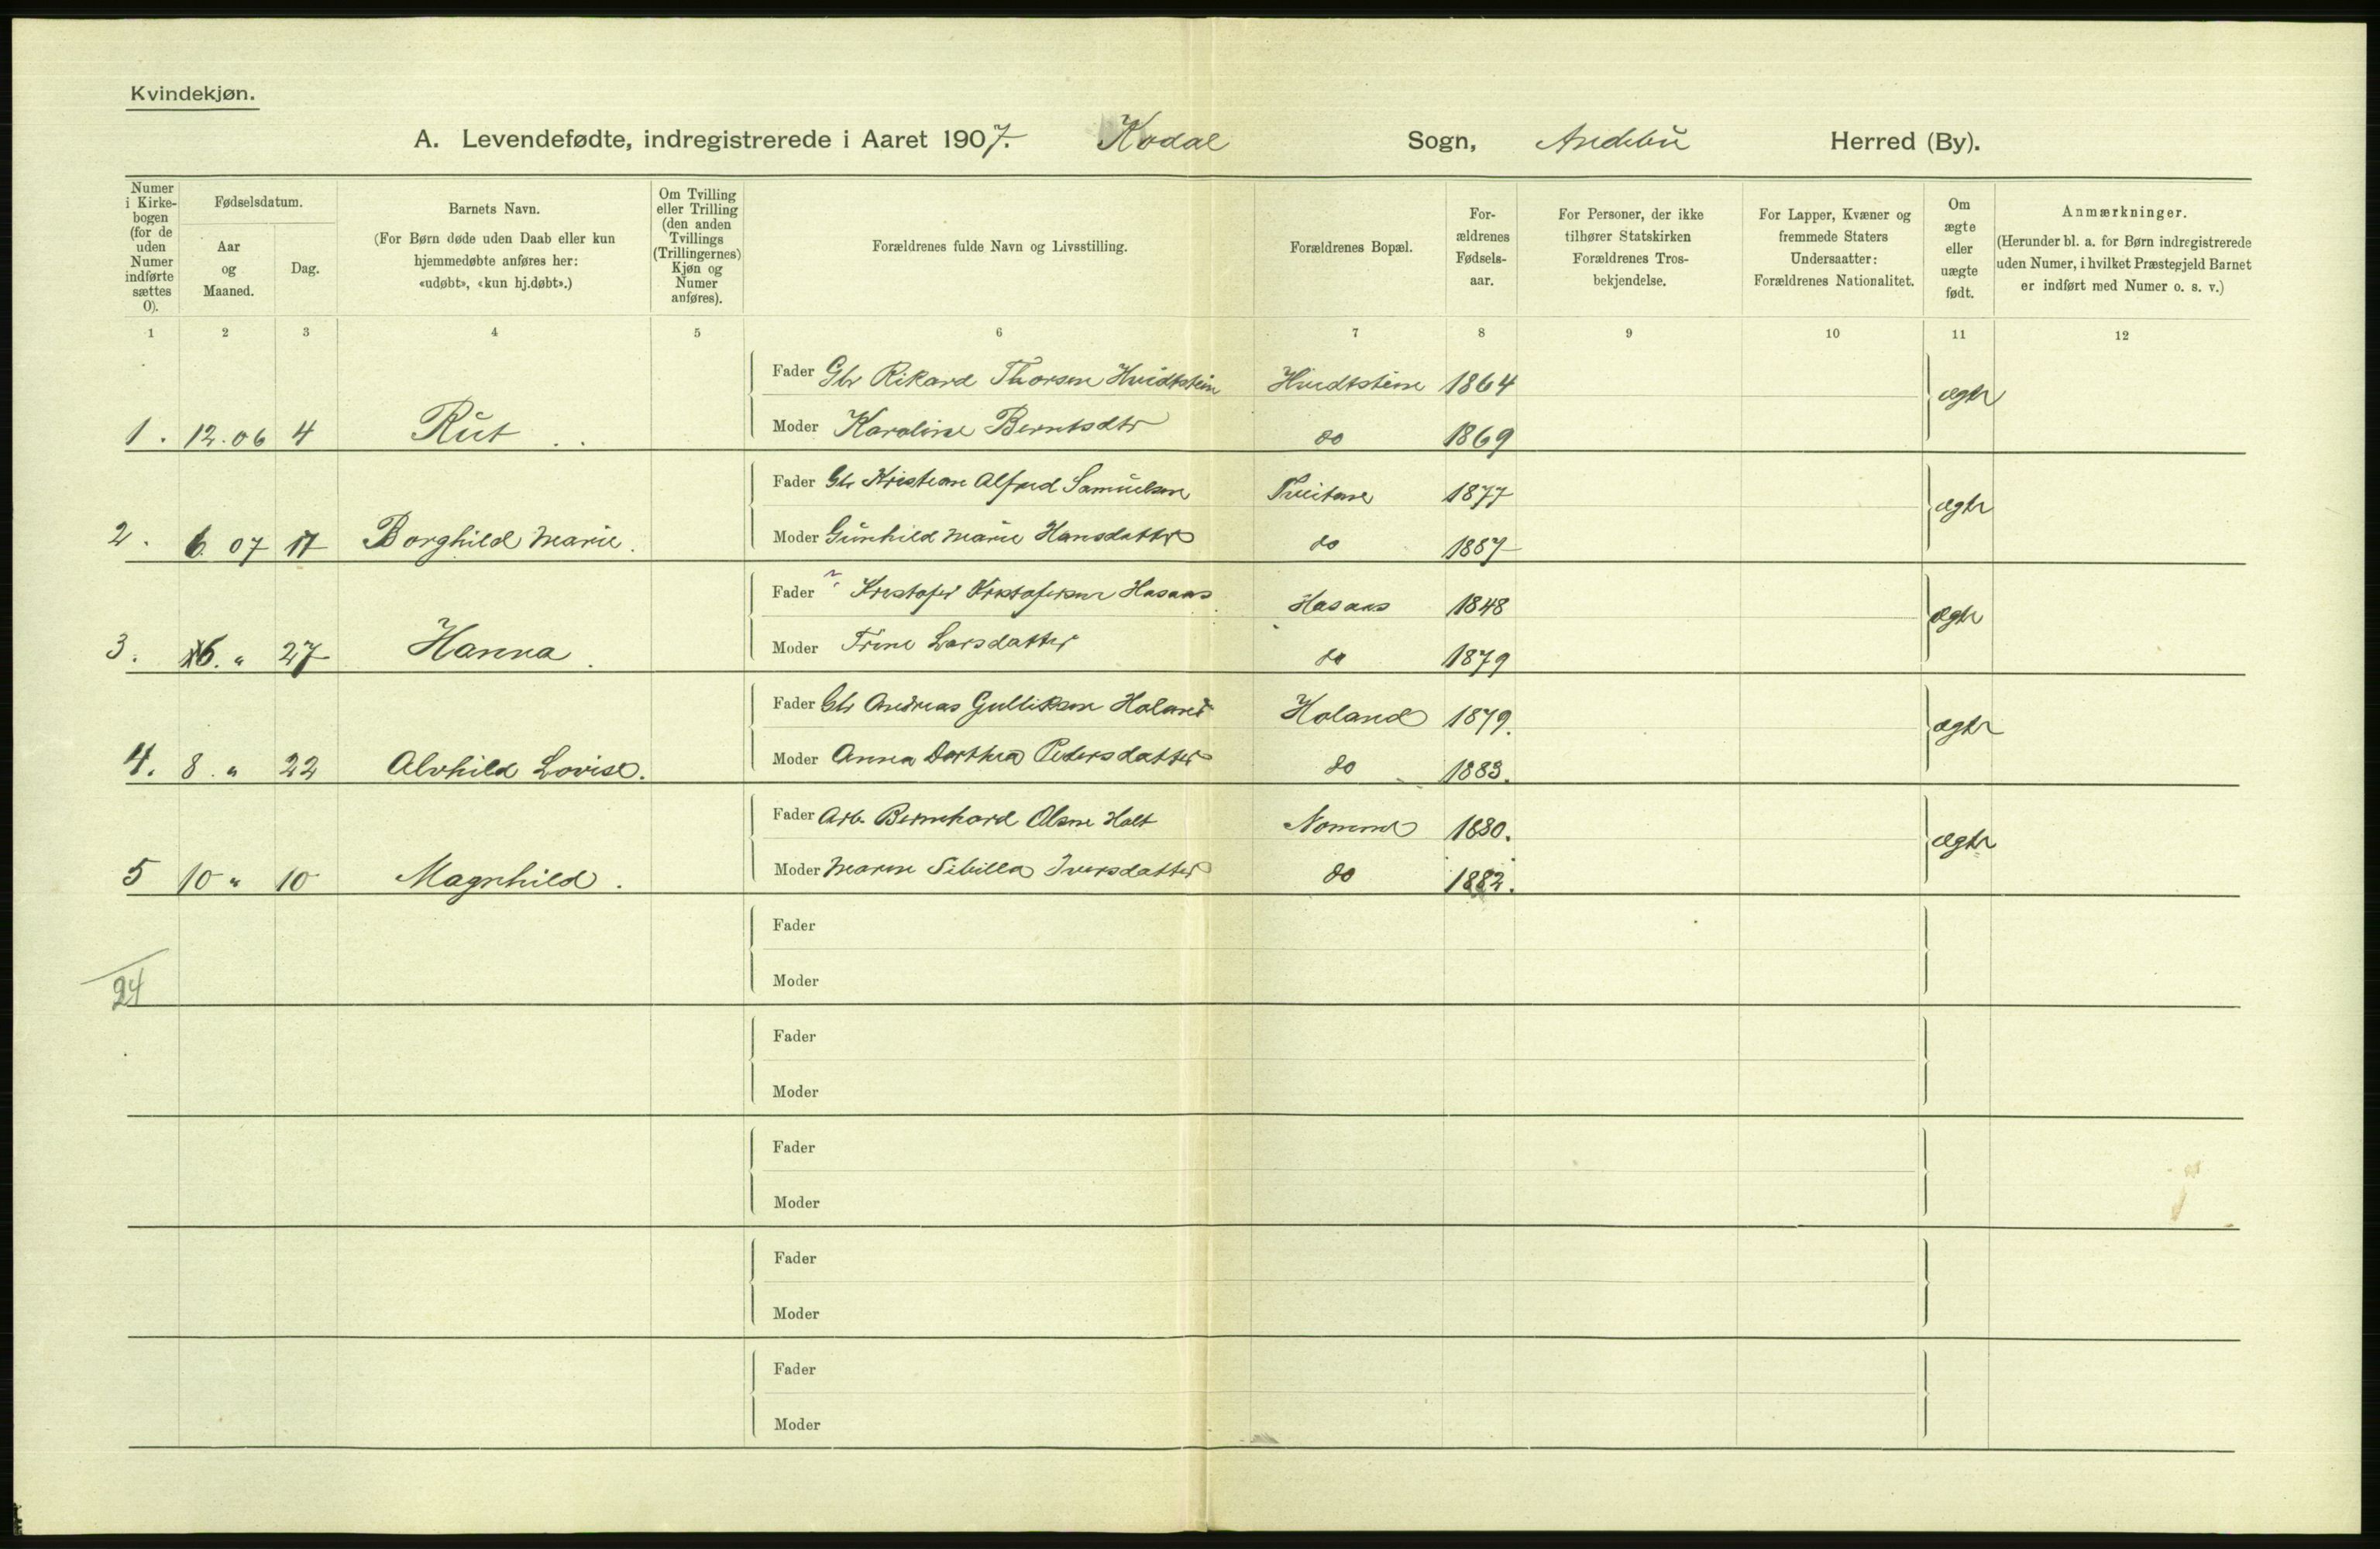 Kvindekjøn.
A. Levendefødte, indregistrerede i Aaret 1907. Kodal Sogn, Andebu Herred (By).
Numer i Kirkebogen (for de uden Numer indførte sættes 0).
Fødselsdatum.
Aar og Maaned.
Dag.
Barnets Navn.
(For Børn døde uden Daab eller kun hjemmedøbte anføres her: «udøbt», «kun hj.døbt».)
Om Tvilling eller Trilling (den anden Tvillings (Trillingernes) Kjøn og Numer anføres).
Forældrenes fulde Navn og Livsstilling.
Forældrenes Bopæl.
Forældrenes Fødselsaar.
For Personer, der ikke tilhører Statskirken Forældrenes Trosbekjendelse.
For Lapper, Kvæner og fremmede Staters Undersaatter: Forældrenes Nationalitet.
Om ægte eller uægte født.
Anmærkninger.
(Herunder bl. a. for Børn indregistrerede uden Numer, i hvilket Præstegjeld Barnet er indført med Numer o. s. v.)
1 2 3 4 5 6 7 8 9 10 11 12
Fader Gbr Rikard Thorsen Hvidtstein Hvidtstein 1864 ægte
1. 12.06 4 Rut Moder Karoline Berntsdtr do 1869
Fader Gbr Kristian Alfred Samuelsen Tveitane 1877 ægte
2. 6. 07 17 Borghild Marie. Moder Gunhild Marie Hansdatter do 1887
Fader Kristofer Kristofersen Hasaas Hasaas 1848 ægte
3. 6. " 27 Hanna. Moder Trine Larsdatter do 1879
Fader Gbr Andreas Gulliksen Holand Holand 1879. ægte
4. 8. " 22 Alvhild Lovise. Moder Anna Dorthea Pedersdatter do 1883.
Fader Arb. Bernhard Olsen Holt 1880. ægte
5 10 " 10 Magnhild. Moder Maren Sibilla Iversdatter do 1882.
Fader
24 Moder
Fader
Moder
Fader
Moder
Fader
Moder
Fader
Moder